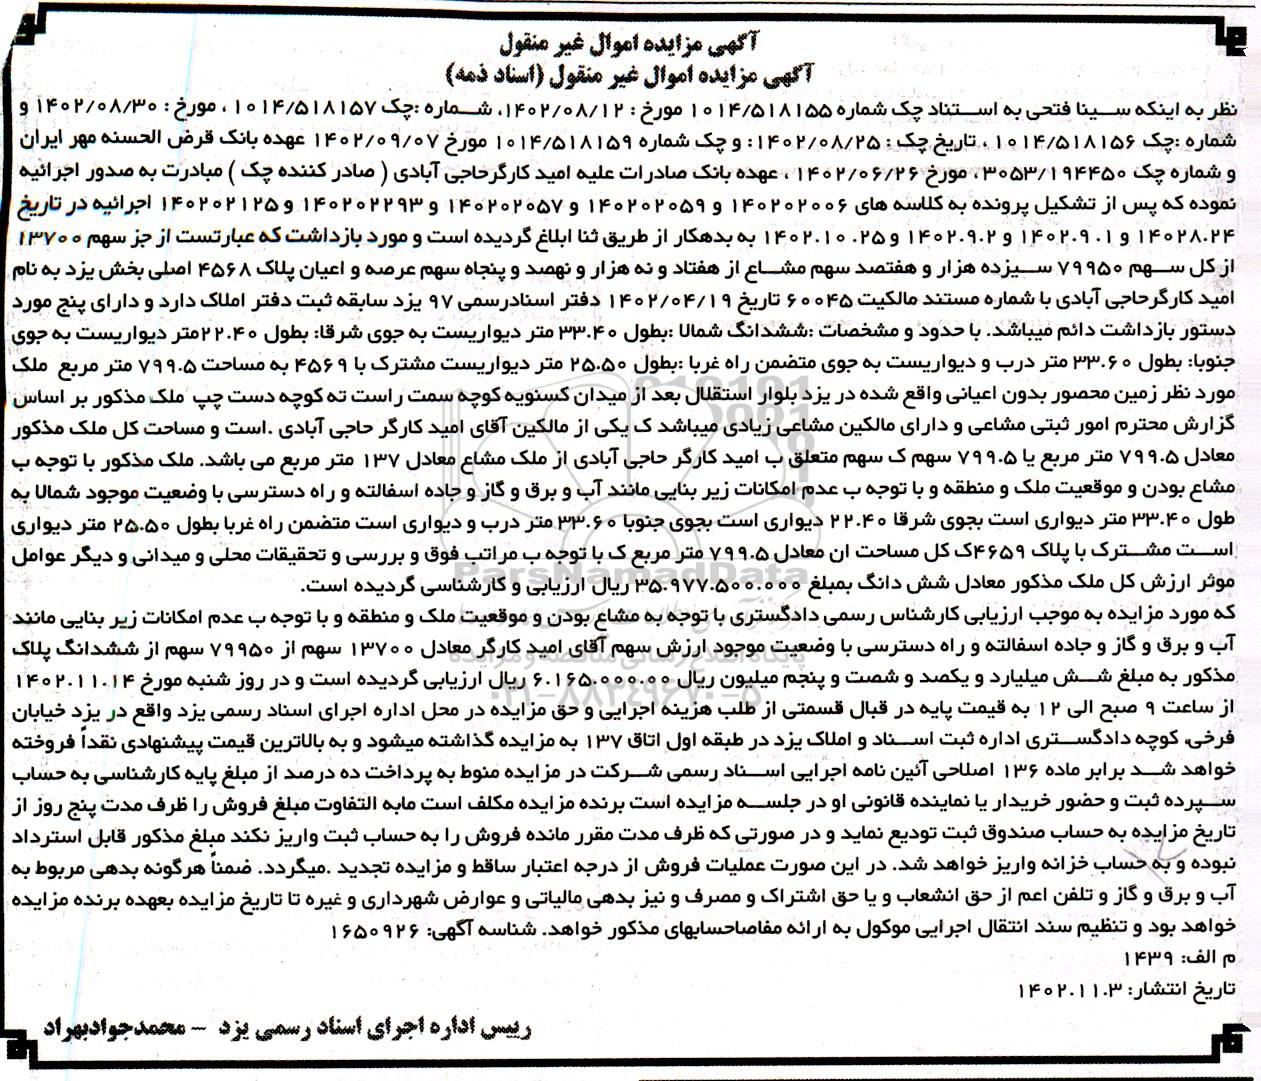 آگهی مزایده اموال غیر منقول
آگهی مزایده اموال غیر منقول (اسناد ذمه)
نظر به اینکه سینا فتحی به استناد چک شماره ۱۰۱۴/۵۱۸۱۵۵ مورخ : ۱۴۰۲/۰۸/۱۲، شماره :چک ۱۰۱۴/۵۱۸۱۵۷ ، مورخ : ۱۴۰۲/۰۸/۳۰ و
شماره :چک ۱۰۱۴/۵۱۸۱۵۶ ، تاریخ چک : ۱۴۰۲/۰۸/۲۵: و چک شماره ۱۰۱۴/۵۱۸۱۵۹ مورخ ۱۴۰۲/۰۹/۰۷ عهده بانک قرض الحسنه مهر ایران
و شماره چک ۳۰۵۳/۱۹۴۴۵۰، مورخ ۱۴۰۲/۰۶/۲۶ ، عهده بانک صادرات علیه امید کارگرحاجی آبادی ( صادر کننده چک ) مبادرت به صدور اجرائیه
نموده که پس از تشکیل پرونده به کلاسه های ۱۴۰۲۰۲۰۰۶ و ۱۴۰۲۰۲۰۵۹ و ۱۴۰۲۰۲۰۵۷ و ۱۴۰۲۰۲۲۹۳ و ۱۴۰۲۰۲۱۲۵ اجرائیه در تاریخ
۱۴۰۲۸.۲۴ و ۱۴۰۲.۹.۰۱ و ۱۴۰۲.۹.۲ و ۲۵. ۱۴۰۲.۱۰ به بدهکار از طریق ثنا ابلاغ گردیده است و مورد بازداشت که عبارتست از جز سهم ۱۳۷۰۰
از کل سهم ۷۹۹۵۰ سیزده هزار و هفتصد سهم مشاع از هفتاد و نه هزار و نهصد و پنجاه سهم عرصه و اعیان پلاک ۴۵۶۸ اصلی بخش یزد به نام
امید کارگرحاجی آبادی با شماره مستند مالکیت ۶۰۰۴۵ تاریخ ۱۴۰۲/۰۴/۱۹ دفتر اسنادرسمی ۹۷ یزد سابقه ثبت دفتر املاک دارد و دارای پنج مورد
دستور بازداشت دائم میباشد. با حدود و مشخصات :ششدانگ شمالا :بطول ۳۳.۴۰ متر دیواریست به جوی شرقا: بطول ۲۲.۴۰متر دیواریست به جوی
جنوبا: بطول ۳۳.۶۰ متر درب و دیواریست به جوی متضمن راه غربا :بطول ۲۵.۵۰ متر دیواریست مشترک با ۴۵۶۹ به مساحت ۷۹۹.۵ متر مربع ملک
مورد نظر زمین محصور بدون اعیانی واقع شده در یزد بلوار استقلال بعد از میدان کسنویه کوچه سمت راست ته کوچه دست چپ ملک مذکور بر اساس
گزارش محترم امور ثبتی مشاعی و دارای مالکین مشاعی زیادی میباشد ک یکی از مالکین آقای امید کارگر حاجی آبادی .است و مساحت کل ملک مذکور
معادل ۷۹۹.۵ متر مربع یا ۷۹۹.۵ سهم ک سهم متعلق ب امید کارگر حاجی آبادی از ملک مشاع معادل ۱۳۷ متر مربع می باشد. ملک مذکور با توجه ب
مشاع بودن و موقعیت ملک و منطقه و با توجه ب عدم امکانات زیر بنایی مانند آب و برق و گاز و جاده اسفالته و راه دسترسی با وضعیت موجود شمالا به
طول ۳۳.۴۰ متر دیواری است بجوی شرقا ۲۲.۴۰ دیواری است بجوی جنوبا ۳۳.۶۰ متر درب و دیواری است متضمن راه غربا بطول ۲۵.۵۰ متر دیواری
است مشترک با پلاک ۴۶۵۹ک کل مساحت ان معادل ۷۹۹.۵ متر مربع ک با توجه ب مراتب فوق و بررسی و تحقیقات محلی و میدانی و دیگر عوامل
موثر ارزش کل ملک مذکور معادل شش دانگ بمبلغ ۳۵.۹۷۷.۵۰۰.۰۰۰ ریال ارزیابی و کارشناسی گردیده است.
که مورد مزایده به موجب ارزیابی کارشناس رسمی دادگستری با توجه به مشاع بودن و موقعیت ملک و منطقه و با توجه ب عدم امکانات زیر بنایی مانند
آب و برق و گاز و جاده اسفالته و راه دسترسی با وضعیت موجود ارزش سهم آقای امید کارگر معادل ۱۳۷۰۰ سهم از ۷۹۹۵۰ سهم از ششدانگ پلاک
مذکور به مبلغ شش میلیارد و یکصد و شصت و پنجم میلیون ریال ۶.۱۶۵.۰۰۰.۰۰ ریال ارزیابی گردیده است و در روز شنبه مورخ ۱۴۰۲.۱۱.۱۴
از ساعت ۹ صبح الی ۱۲ به قیمت پایه در قبال قسمتی از طلب هزینه اجرایی و حق مزایده در محل اداره اجرای اسناد رسمی یزد واقع در یزد خیابان
فرخی، کوچه دادگستری اداره ثبت اسناد و املاک یزد در طبقه اول اتاق ۱۳۷ به مزایده گذاشته میشود و به بالاترین قیمت پیشنهادی نقداً فروخته
خواهد شد برابر ماده ۱۳۶ اصلاحی آئین نامه اجرایی اسناد رسمی شرکت در مزایده منوط به پرداخت ده درصد از مبلغ پایه کارشناسی به حساب
سپرده ثبت و حضور خریدار یا نماینده قانونی او در جلسه مزایده است برنده مزایده مکلف است مابه التفاوت مبلغ فروش را ظرف مدت پنج روز از
تاریخ مزایده به حساب صندوق ثبت تودیع نماید و در صورتی که ظرف مدت مقرر مانده فروش را به حساب ثبت واریز نکند مبلغ مذکور قابل استرداد
نبوده و به حساب خزانه واریز خواهد شد. در این صورت عملیات فروش از درجه اعتبار ساقط و مزایده تجدید .میگردد. ضمناً هرگونه بدهی مربوط به
آب و برق و گاز و تلفن اعم از حق انشعاب و یا حق اشتراک و مصرف و نیز بدهی مالیاتی و عوارض شهرداری و غیره تا تاریخ مزایده بعهده برنده مزایده
خواهد بود و تنظیم سند انتقال اجرایی موکول به ارائه مفاصاحسابهای مذکور خواهد. شناسه آگهی: ۱۶۵۰۹۲۶
م الف: ۱۴۳۹
تاریخ انتشار: ۱۴۰۲.۱۱.۳
رییس اداره اجرای اسناد رسمی یزد – محمدجوادبهراد
ParsNamadData
پایگاه اطلاع رسانی مناقصه و مزایده
۰۲۱-۸۸۳۴۹۶۷۰-۵